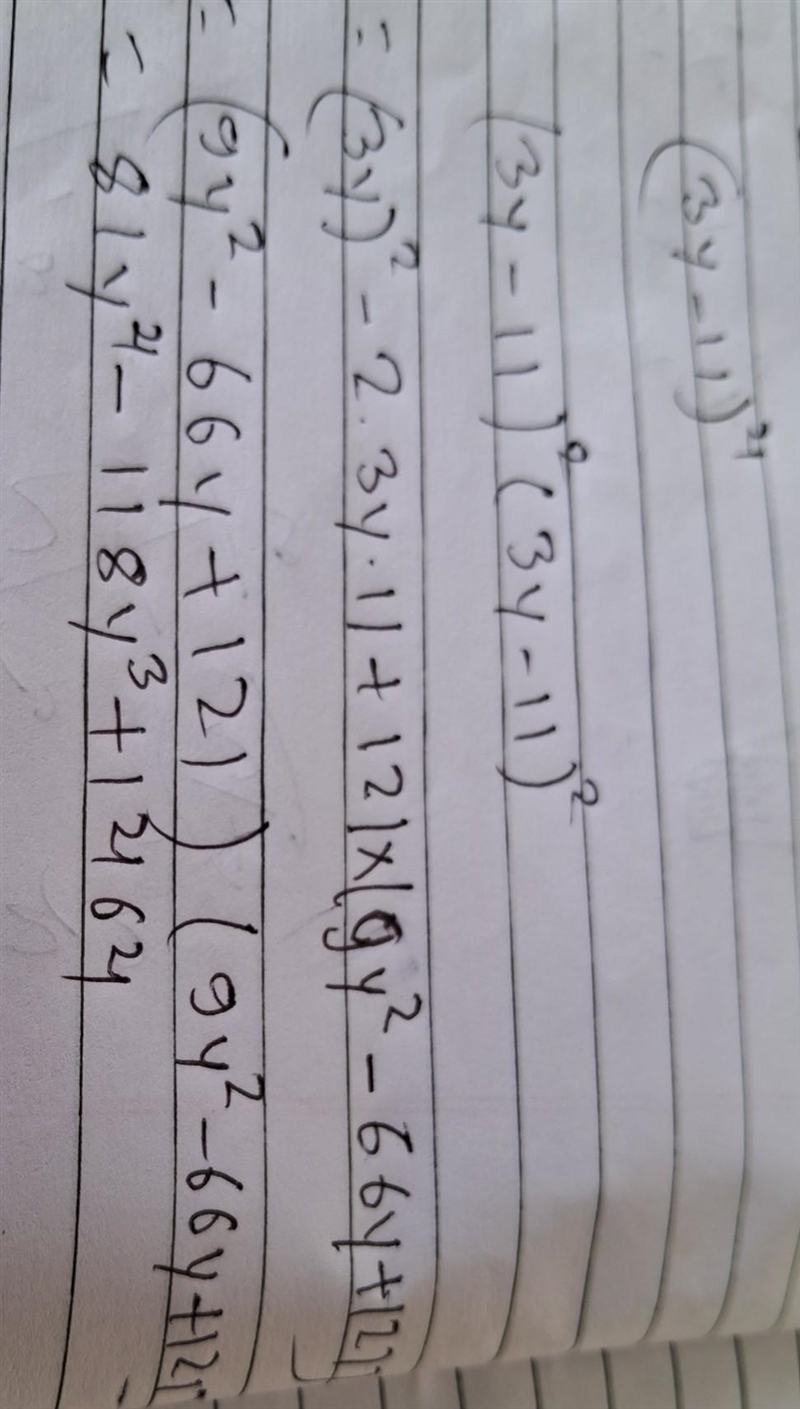 (3y-11)⁴
(3y-11)² (3y-11)²
= (3y)² - 2.3y.11 + 121 x (9y² - 66y + 121
= (9y² - 66y + 121) (9y² - 66y + 121
= 81y⁴ - 118y³ + 12464